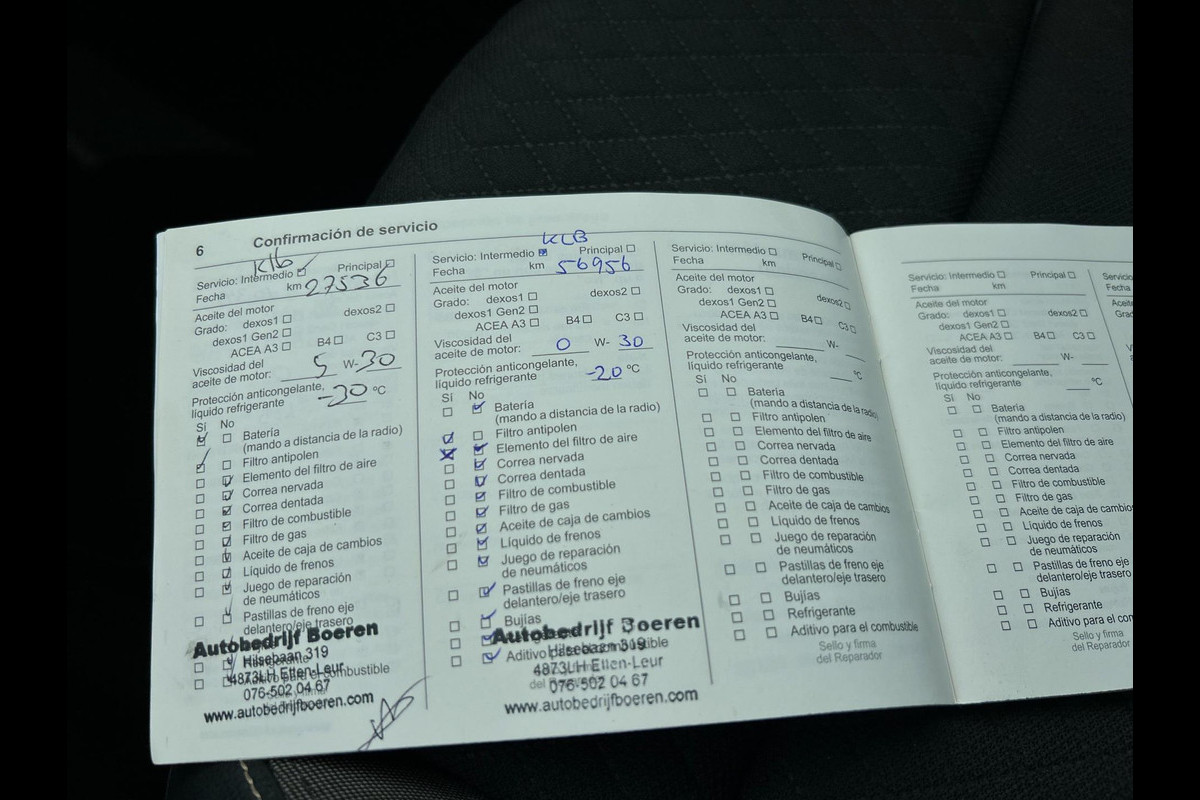 6 Confirmación de servicio
K1b
Servicio: Intermedio Principal
Fecha km 27536
Aceite del motor
Grado: dexos1 dexos2
dexos1 Gen2
ACEA A3 B4 C3
Viscosidad del
aceite de motor: 5 W- 30
Protección anticongelante,
líquido refrigerante -30 °C
Sí No
Batería
(mando a distancia de la radio)
Filtro antipolen
Elemento del filtro de aire
Correa nervada
Correa dentada
Filtro de combustible
Filtro de gas
Aceite de caja de cambios
Líquido de frenos
Juego de reparación
de neumáticos
Pastillas de freno eje
delantero/eje trasero
Autobedrijf Boeren
Hilsebaan 319
4873LH Etten-Leur
076-502 04 67
www.autobedrijfboeren.com
KLB
Servicio: Intermedio Principal
Fecha km 56956
Aceite del motor
Grado: dexos1 dexos2
dexos1 Gen2
ACEA A3 B4 C3
Viscosidad del
aceite de motor: 0 W- 30
Protección anticongelante,
líquido refrigerante -20 °C
Sí No
Batería
(mando a distancia de la radio)
Filtro antipolen
Elemento del filtro de aire
Correa nervada
Correa dentada
Filtro de combustible
Filtro de gas
Aceite de caja de cambios
Líquido de frenos
Juego de reparación
de neumáticos
Pastillas de freno eje
delantero/eje trasero
Bujías
Autobedrijf Boeren
Aditivo para el combustible
Hilsebaan 319
4873LH Etten-Leur
076-502 04 67
www.autobedrijfboeren.com
Servicio: Intermedio Principal
Fecha km
Aceite del motor
Grado: dexos1 dexos2
dexos1 Gen2
ACEA A3 B4 C3
Viscosidad del
aceite de motor: W-
Protección anticongelante,
líquido refrigerante °C
Sí No
Batería
(mando a distancia de la radio)
Filtro antipolen
Elemento del filtro de aire
Correa nervada
Correa dentada
Filtro de combustible
Filtro de gas
Aceite de caja de cambios
Líquido de frenos
Juego de reparación
de neumáticos
Pastillas de freno eje
delantero/eje trasero
Bujías
Refrigerante
Aditivo para el combustible
Sello y firma
del Reparador
Servicio: Intermedio Principal
Fecha km
Aceite del motor
Grado: dexos1 dexos2
dexos1 Gen2
ACEA A3 B4 C3
Viscosidad del
aceite de motor: W-
Protección anticongelante,
líquido refrigerante °C
Sí No
Batería
(mando a distancia de la radio)
Filtro antipolen
Elemento del filtro de aire
Correa nervada
Correa dentada
Filtro de combustible
Filtro de gas
Aceite de caja de cambios
Líquido de frenos
Juego de reparación
de neumáticos
Pastillas de freno eje
delantero/eje trasero
Bujías
Refrigerante
Aditivo para el com
Sello y firma
del Reparador
Servicio
Fecha